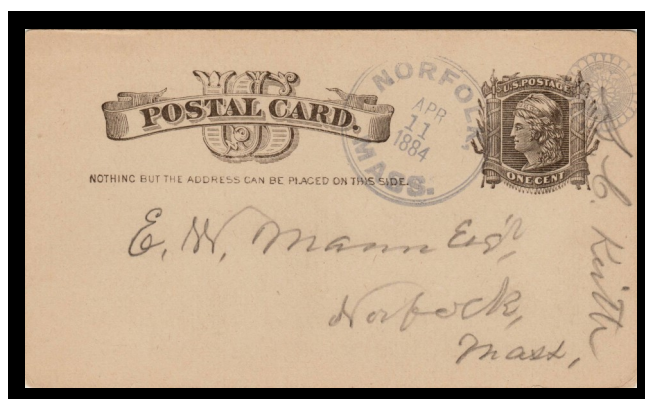 US
POSTAL CARD.
NOTHING BUT THE ADDRESS CAN BE PLACED ON THIS SIDE.
NORFOLK,
APR
11
1884
MASS.
U.S. POSTAGE
ONE CENT
E. W. Mann Esq'r
Norfolk,
Mass,
Keith